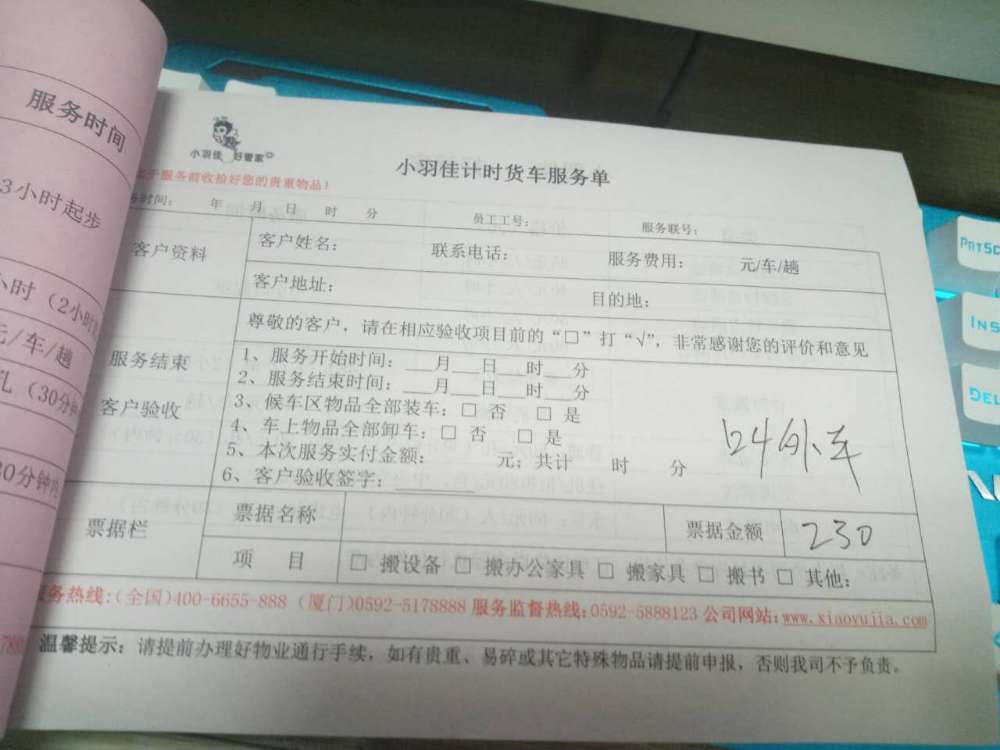 服务时间
3小时起步
小时（2小时
元/车/趟
（30分钟
30分钟内
小羽佳 好管家
于服务前收拾好您的贵重物品！
小羽佳计时货车服务单
务时间： 年 月 日 时 分 员工工号： 服务联号：
客户资料
客户姓名： 联系电话： 服务费用： 元/车/趟
客户地址： 目的地：
尊敬的客户，请在相应验收项目前的“□”打“√”，非常感谢您的评价和意见
服务结束
客户验收
1、服务开始时间：___月___日___时___分
2、服务结束时间：___月___日___时___分
3、候车区物品全部装车：□ 否 □ 是
4、车上物品全部卸车：□ 否 □ 是
5、本次服务实付金额： 元；共计 时 分
6、客户验收签字：______
外车
票据栏
票据名称 票据金额 230
项 目 □ 搬设备 □ 搬办公家具 □ 搬家具 □ 搬书 □ 其他：
服务热线：(全国)400-6655-888 (厦门)0592-5178888 服务监督热线：0592-5888123 公司网站：www.xiaoyujia.com
温馨提示：请提前办理好物业通行手续，如有贵重、易碎或其它特殊物品请提前申报，否则我司不予负责。
PRTSC
INS
DEL